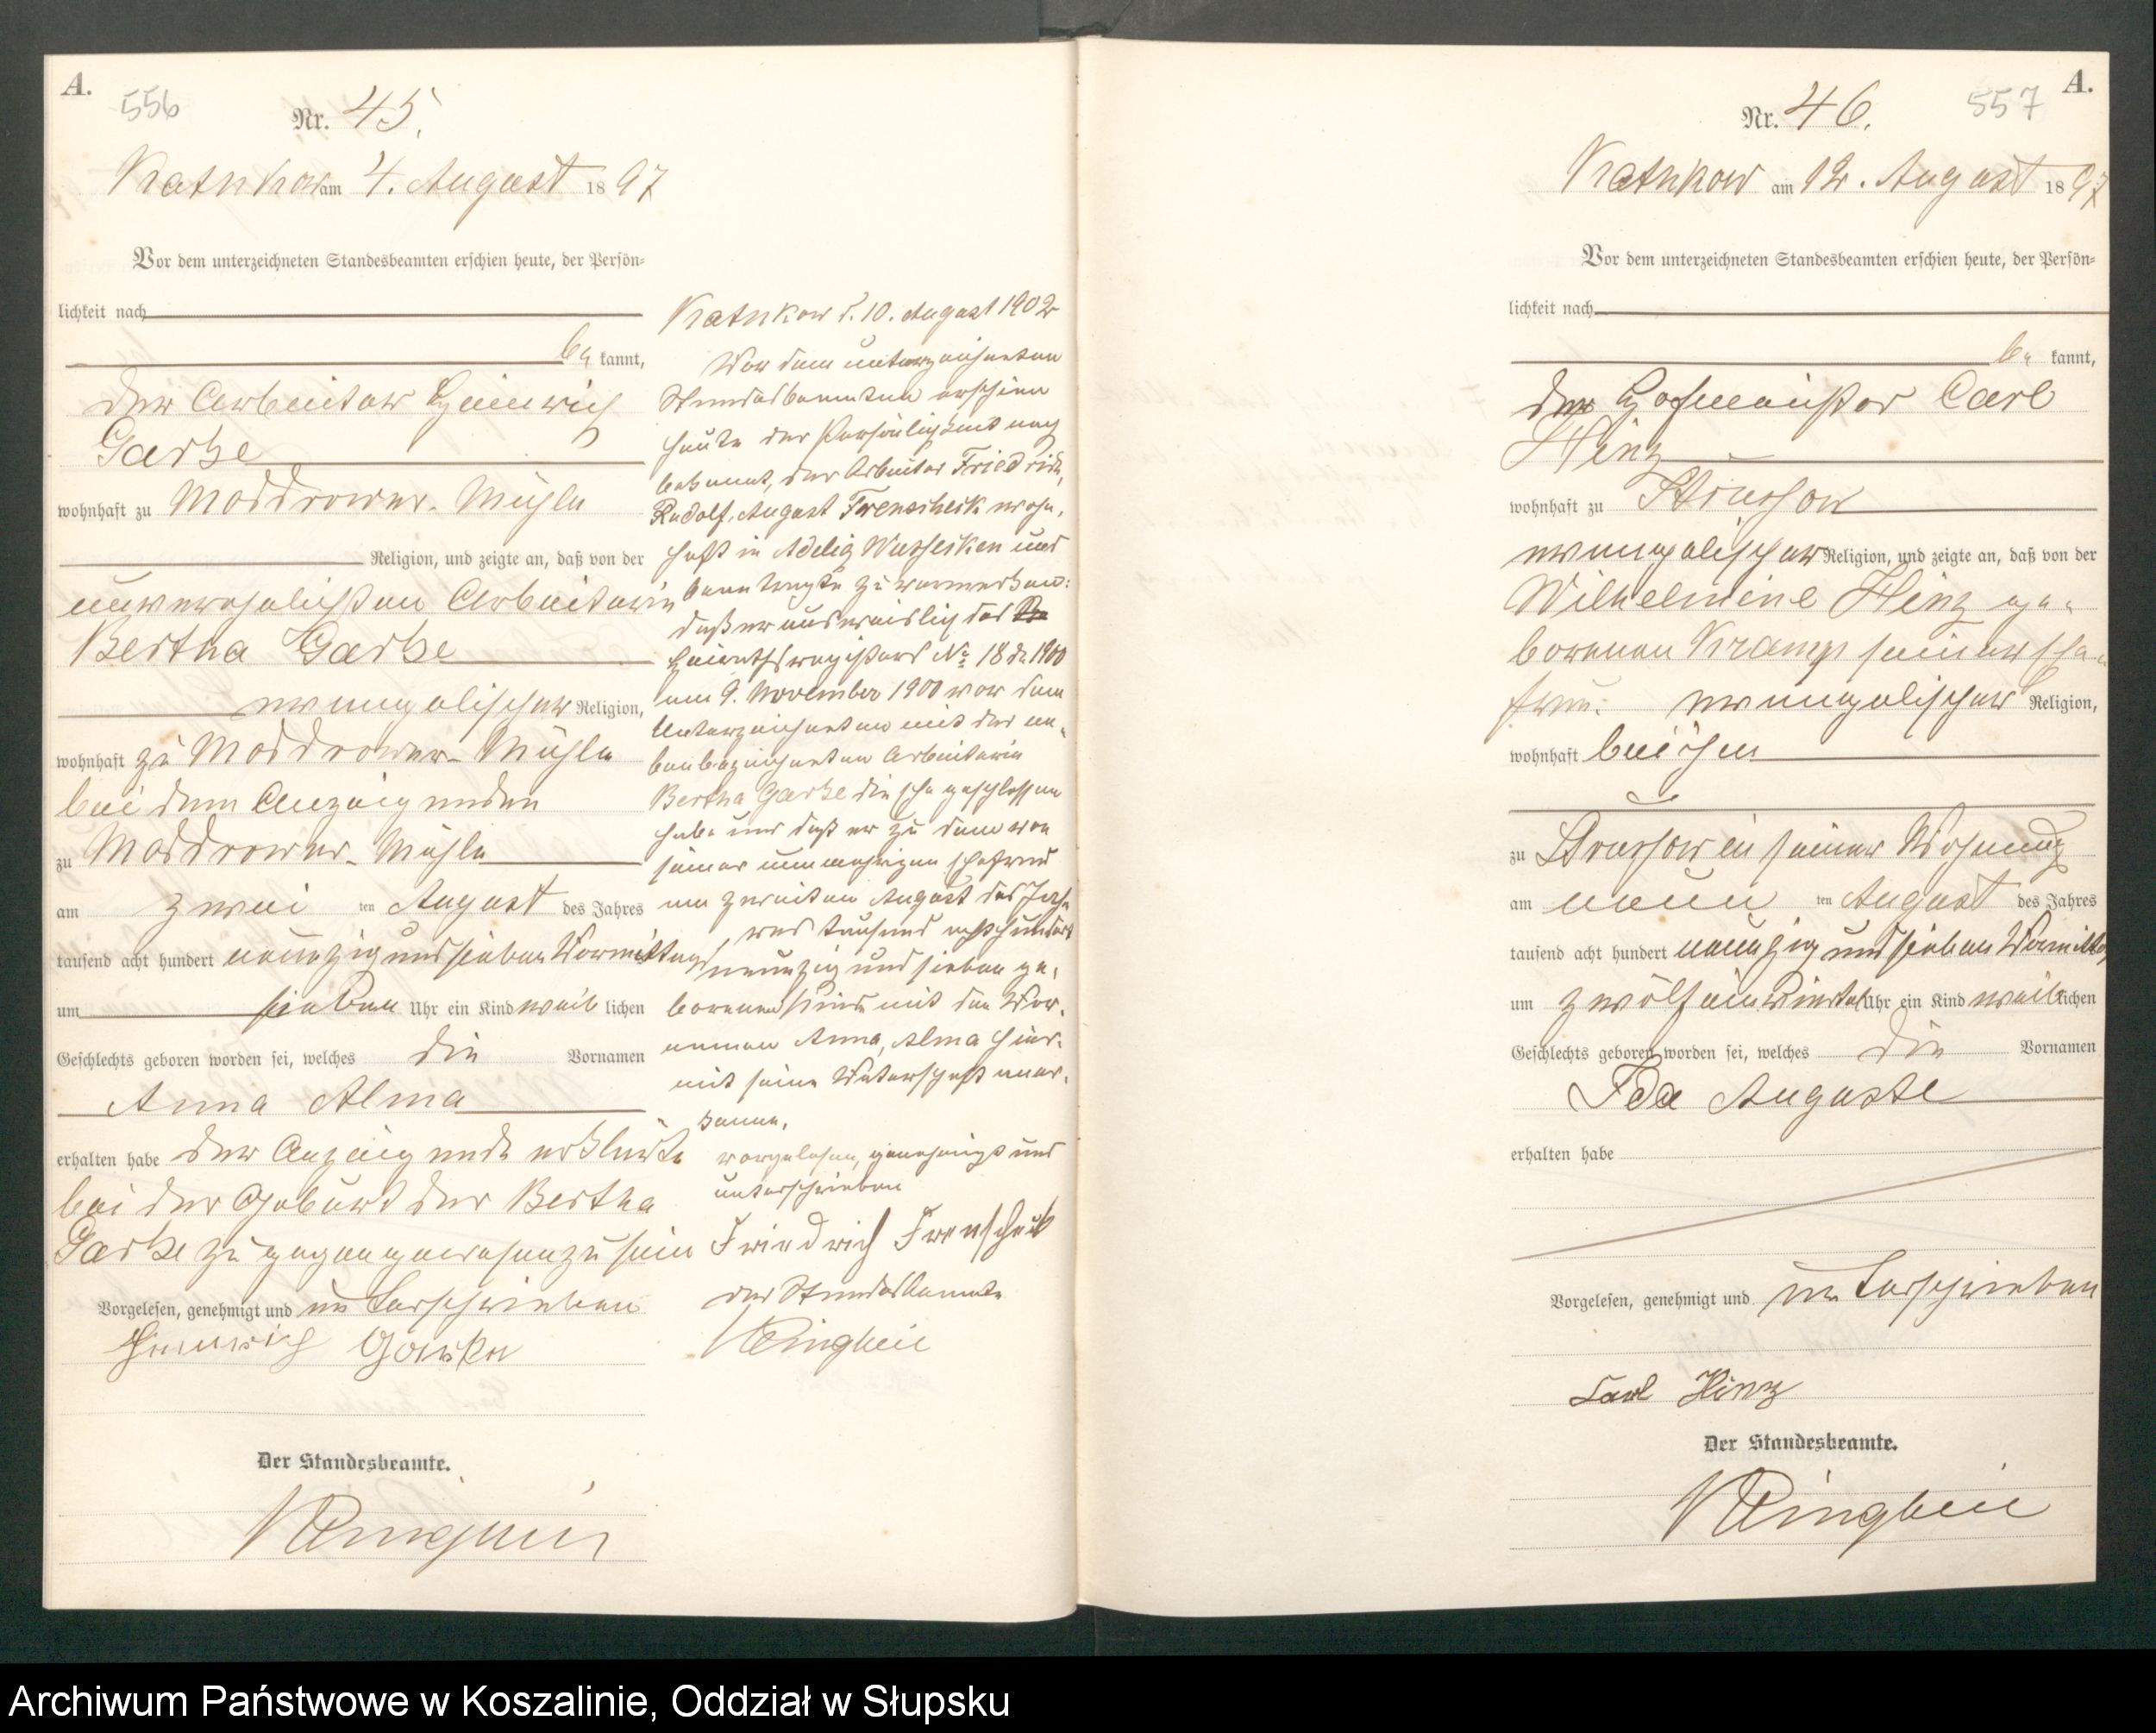 A.
556
Nr. 45.
Kathkow am 4. August 1897
Vor dem unterzeichneten Standesbeamten erschien heute, der Persön=
lichkeit nach
be kannt,
der Arbeiter Heinrich
Garske
wohnhaft zu Moddrower-Mühle
Religion, und zeigte an, daß von der
unverehelichten Arbeiterin
Bertha Garske
evangelischer Religion,
wohnhaft zu Moddrower-Mühle
bei dem Anzeigenden
zu Moddrower-Mühle
am zwei ten August des Jahres
tausend acht hundert neunzig und sieben Vormittags
um sieben Uhr ein Kind weib lichen
Geschlechts geboren worden sei, welches die Vornamen
Anna Alma
erhalten habe der Anzeigende erklärte
bei der Geburt der Bertha
Garske zugegen gewesen zu sein
Vorgelesen, genehmigt und unterschrieben
Heinrich Garske
Der Standesbeamte.
Kathkow d. 10. August 1902
Vor dem unterzeichneten
Standesbeamten erschien
heute der Persönlichkeit nach
bekannt, der Arbeiter Friedrich,
Rudolf, August Frenscheck wohn-
haft in Adelig Wusseken und
beantragte zu vermerken:
daß er ausweislich des
Heirathsregisters No 18 de 1900
am 9. November 1900 vor dem
Unterzeichneten mit der ne-
benbezeichneten Arbeiterin
Bertha Garske die Ehe geschlossen
habe und daß er zu dem von
seiner nunmehrigen Ehefrau
am zweiten August des Jah-
res tausend achthundert
neunzig und sieben ge-
borenen Kinde mit den Vor-
namen Anna, Alma hier-
mit seine Vaterschaft aner-
kenne.
vorgelesen, genehmigt und
unterschrieben
Friedrich Frenscheck
Der Standesbeamte
A.
557
Nr. 46.
Kathkow am 12. August 1897
Vor dem unterzeichneten Standesbeamten erschien heute, der Persön=
lichkeit nach
be kannt,
der Hofmeister Carl
Hinz
wohnhaft zu Strussow
evangelischer Religion, und zeigte an, daß von der
Wilhelmine Hinz ge-
borenen Kramp seiner Ehe-
frau evangelischer Religion,
wohnhaft bei ihm
zu Strussow in seiner Wohnung
am neun ten August des Jahres
tausend acht hundert neunzig und sieben Vormittags
um zwölf ein Viertel Uhr ein Kind weiblichen
Geschlechts geboren worden sei, welches die Vornamen
Ida Auguste
erhalten habe
Vorgelesen, genehmigt und unterschrieben
Carl Hinz
Der Standesbeamte.
Archiwum Państwowe w Koszalinie, Oddział w Słupsku